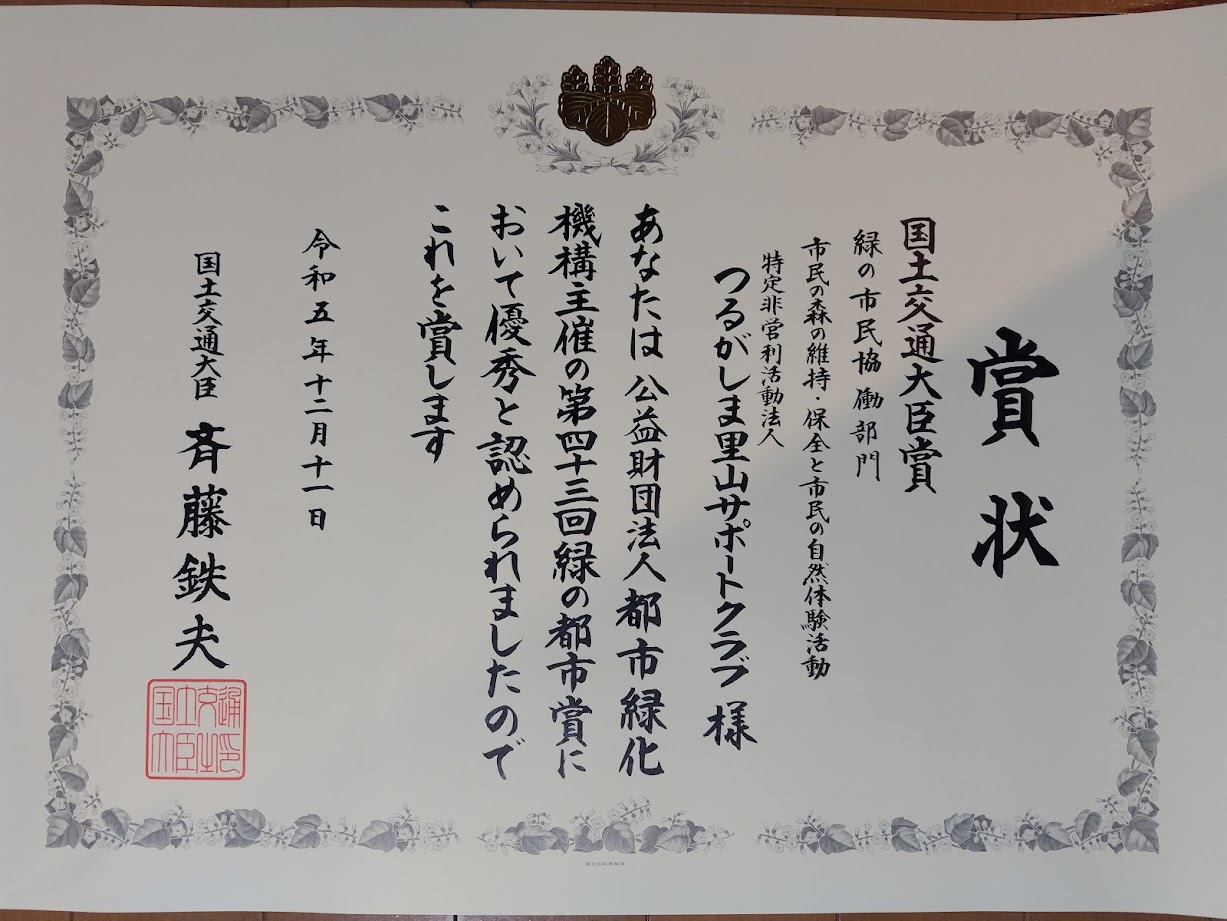 賞状
国土交通大臣賞
緑の市民協働部門
市民の森の維持・保全と市民の自然体験活動
特定非営利活動法人
つるがしま里山サポートクラブ 様
あなたは公益財団法人都市緑化
機構主催の第四十三回緑の都市賞に
おいて優秀と認められましたので
これを賞します
令和五年十二月十一日
国土交通大臣 斉藤鉄夫
国土交通
大臣之印